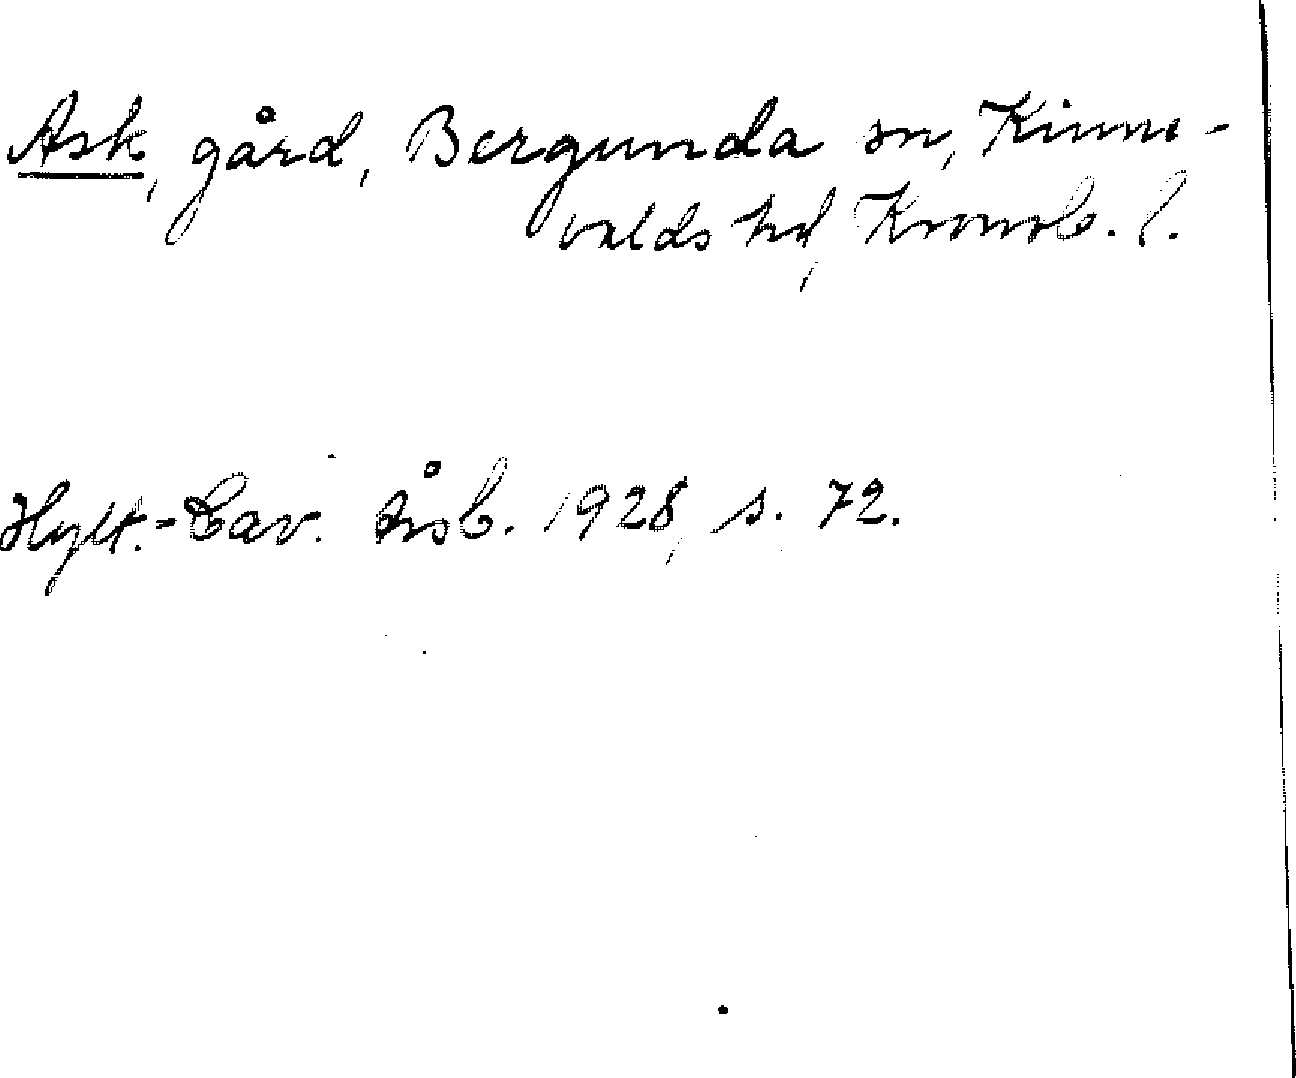 Ask, gård, Bergunda sn, Kinne-
valds hd, Kronob. l.
Hylt.-Cav. årsb. 1928, s. 72.